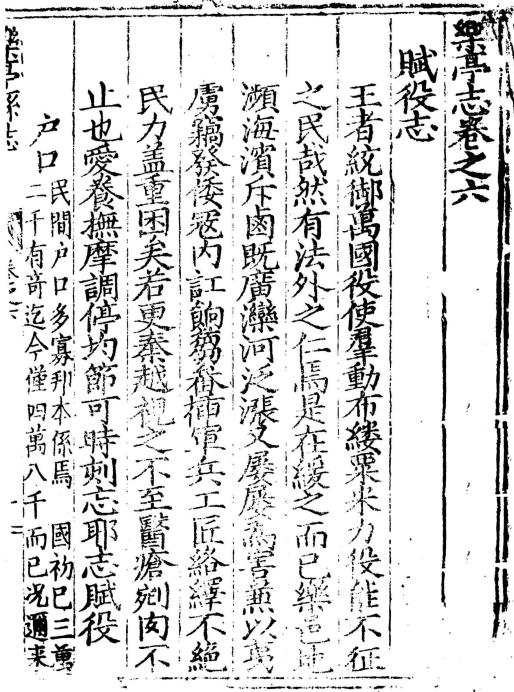 樂亭志卷之六
賦役志
王者統御萬國役使羣動布縷粟米力役能不征
之民哉然有法外之仁焉是在緩之而已樂邑地
瀕海濱斥鹵既廣灤河泛漲又屢屢為害兼以夷
虜竊發倭寇內訌餉芻畚揷軍兵工匠絡繹不絕
民力盖重困矣若更秦越視之不至醫瘡剜肉不
止也愛養撫摩調停均節可時刻忘耶志賦役
户口民間户口多寡邦本係焉　國初巳三萬
二千有奇迄今僅四萬八千而巳况邇来
樂亭縣志
卷之六